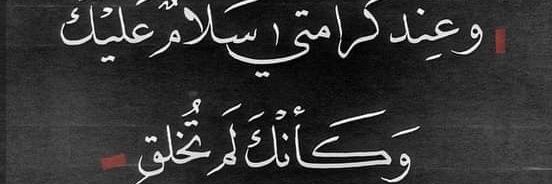 وعِند كرامتي سَلامٌ عَليْكَ
وَكَأنْكَ لَمَ تُخلقِ